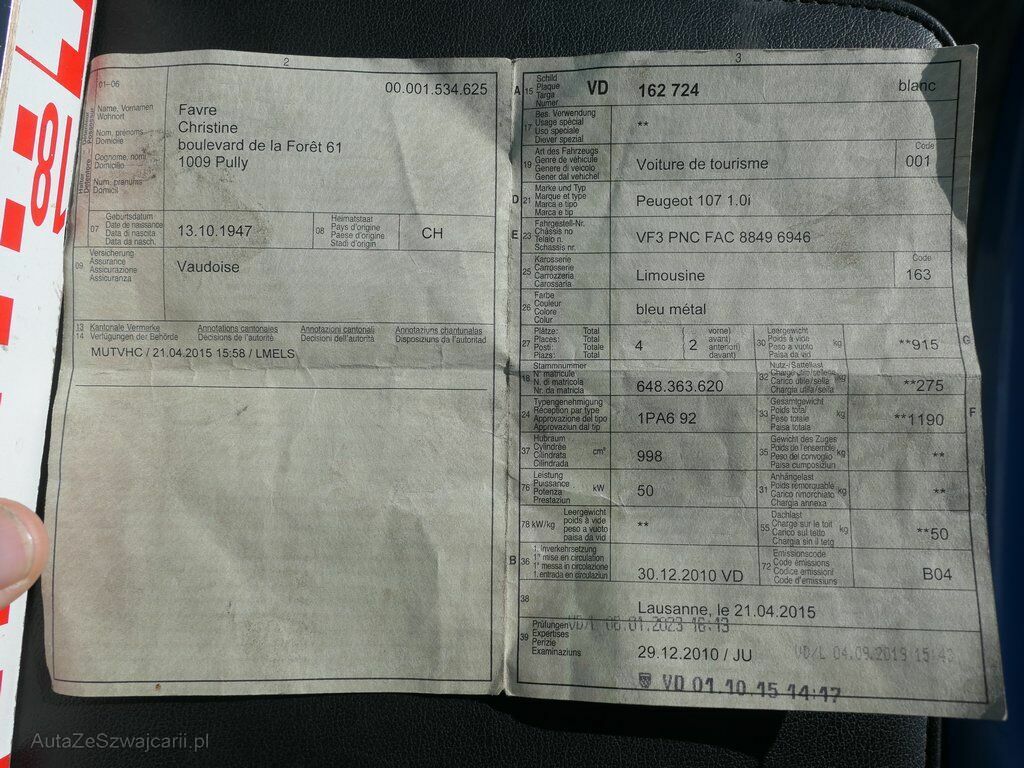 2
01–06
00.001.534.625
Name, Vornamen
Wohnort
Nom, prénoms
Domicile
Cognome, nomi
Domicilio
Num, prenums
Domicil
Favre
Christine
boulevard de la Forêt 61
1009 Pully
07
Geburtsdatum
Date de naissance
Data di nascita
Data da nasch.
13.10.1947
08
Heimatstaat
Pays d'origine
Paese d'origine
Stadi d'origin
CH
09
Versicherung
Assurance
Assicurazione
Assicuranza
Vaudoise
13
14
Kantonale Vermerke
Verfügungen der Behörde
Annotations cantonales
Décisions de l'autorité
Annotazioni cantonali
Decisioni dell'autorità
Annotaziuns chantunalas
Disposiziuns da l'autoritad
MUTVHC / 21.04.2015 15:58 / LMELS
3
A
15
Schild
Plaque
Targa
Numer
VD 162 724 blanc
17
Bes. Verwendung
Usage spécial
Uso speciale
Diever spezial
**
19
Art des Fahrzeugs
Genre de véhicule
Genere di veicolo
Gener dal vehichel
Voiture de tourisme
Code
001
D
21
Marke und Typ
Marque et type
Marca e tipo
Marca e tip
Peugeot 107 1.0i
E
23
Fahrgestell-Nr.
Châssis no
Telaio n.
Schassis nr.
VF3 PNC FAC 8849 6946
25
Karosserie
Carrosserie
Carrozzeria
Carossaria
Limousine
Code
163
26
Farbe
Couleur
Colore
Colur
bleu métal
27
Plätze: Total
Places: Total
Posti: Totale
Plazs: Total
4
2
vorne)
avant)
anteriori)
davant)
30
Leergewicht
Poids à vide
Peso a vuoto
Paisa da vid
kg
**915
G
18
Stammnummer
N° matricule
N. di matricola
Nr. da matricla
648.363.620
32
Nutz-/Sattellast
Charge utile/sellette
Carico utile/sella
Chargia utila/sella
kg
**275
24
Typengenehmigung
Réception par type
Approvazione del tipo
Approvaziun dal tip
1PA6 92
33
Gesamtgewicht
Poids total
Peso totale
Paisa totala
kg
**1190
F
37
Hubraum
Cylindrée
Cilindrata
Cilindrada
cm³
998
35
Gewicht des Zuges
Poids de l'ensemble
Peso del convoglio
Paisa cumposiziun
kg
**
76
Leistung
Puissance
Potenza
Prestaziun
kW
50
31
Anhängelast
Poids remorquable
Carico rimorchiato
Chargia annexa
kg
**
78 kW/kg
Leergewicht
poids à vide
peso a vuoto
paisa da vid
**
55
Dachlast
Charge sur le toit
Carico sul tetto
Chargia sin il tetg
kg
**50
B
36
1. Inverkehrsetzung
1re mise en circulation
1a messa in circolazione
1. entrada en circulaziun
30.12.2010 VD
72
Emissionscode
Code émissions
Codice emissioni
Code d'emissiuns
B04
38
Lausanne, le 21.04.2015
39
Prüfungen
Expertises
Perizie
Examinaziuns
VD/L 06.01.2023 16:13
29.12.2010 / JU
VD/L 04.09.2019 15:43
VD 01 10 15 14:17
18
AutaZeSzwajcarii.pl